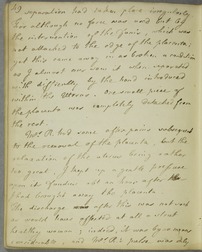 separation had taken place irregularly
for although no force was used but by
the intervention of the Funis, which was
not attached to the edge of the placenta,
yet this came away in so broken a condition
as I almost ever saw it when separated
with difficulty by the hand introduced
within the Uterus. One small piece of
the placenta was completely detached from
the rest.
Mrs. R. had severe after-pains subsequent
to the removal of the placenta, but the
relaxation of the uterus being rather
too great, I kept up a gentle pressure
upon its fundus half an hour after
had brought away the placenta
The discharge after this was not such
as would have affected at all a stout
healthy woman; indeed, it was by no means
considerable and Mrs. R's pulse was only